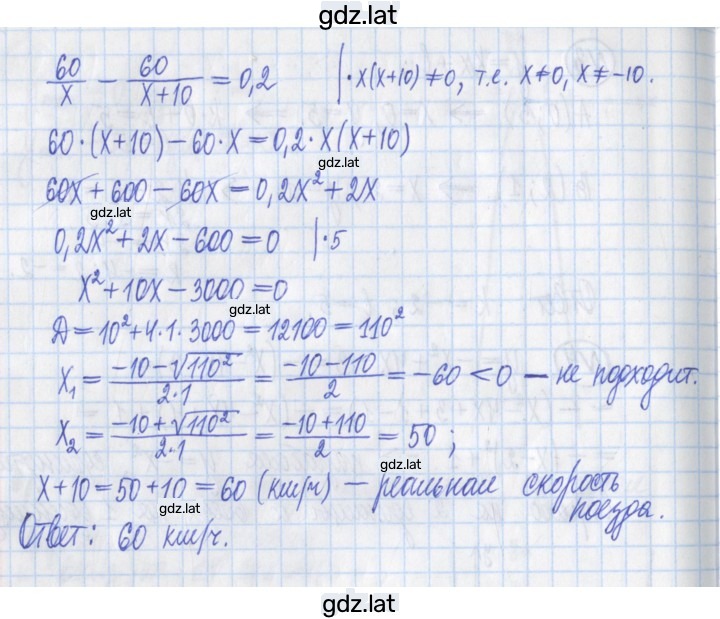 gdz.lat
60/x − 60/(x+10) = 0,2 | · x(x+10) ≠ 0, т.е. x ≠ 0, x ≠ −10.
60 · (x+10) − 60 · x = 0,2 · x(x+10)
gdz.lat
60x + 600 − 60x = 0,2x² + 2x
gdz.lat
0,2x² + 2x − 600 = 0 | · 5
x² + 10x − 3000 = 0
gdz.lat
Д = 10² + 4 · 1 · 3000 = 12100 = 110²
x₁ = (−10 − √110²)/(2 · 1) = (−10 − 110)/2 = −60 < 0 — не подходит.
gdz.lat
x₂ = (−10 + √110²)/(2 · 1) = (−10 + 110)/2 = 50 ;
gdz.lat
x + 10 = 50 + 10 = 60 (км/ч) — реальная скорость
поезда.
Ответ: 60 км/ч.
gdz.lat
gdz.lat